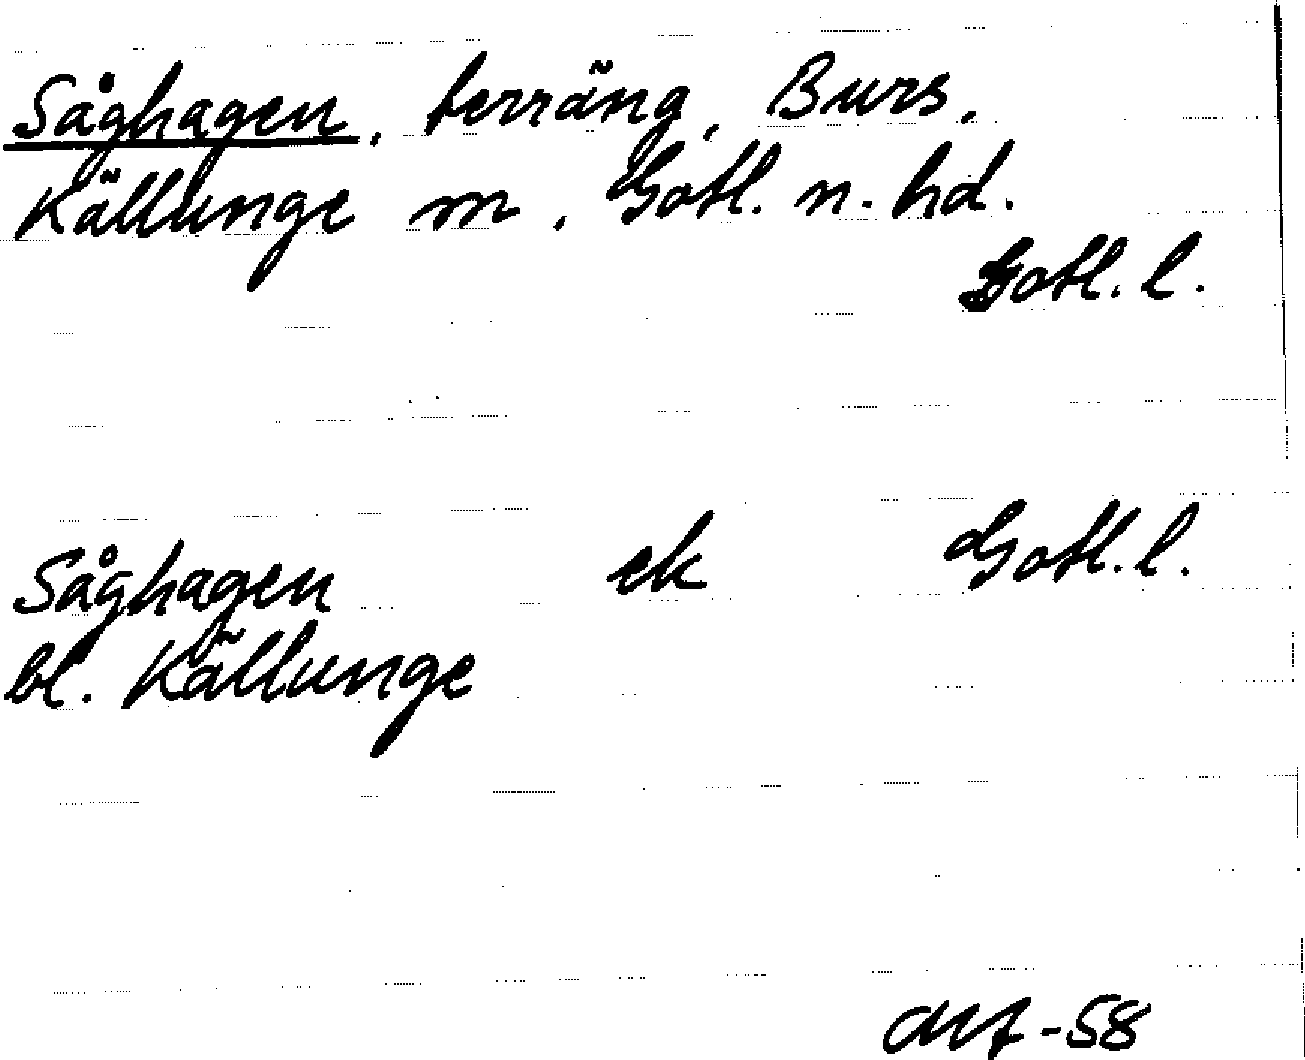 Såghagen, terräng, Burs,
Källunge sn, Gotl. n. hd.
Gotl. l.
Såghagen ek Gotl. l.
bl. Källunge
-58